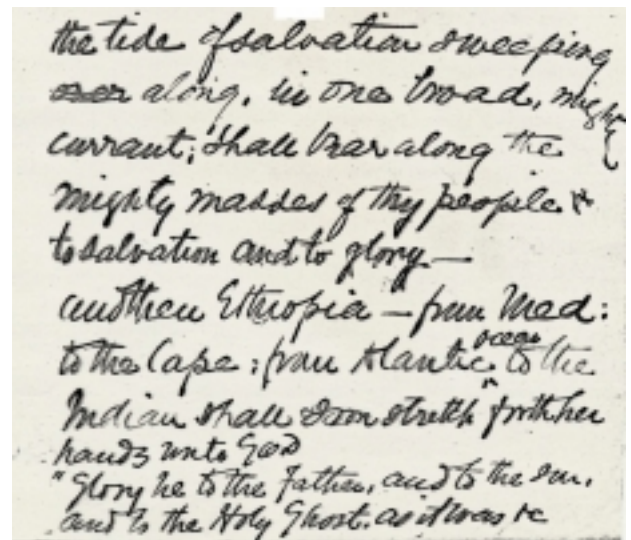 the tide of salvation sweeping
over along, in one broad, mighty
currant; shall bear along the
mighty masses of thy people
to salvation and to glory—
and then Ethiopia — from Med:
to the Cape: from Atlantic ocean to the
Indian shall soon stretch forth her
hands unto God
"Glory be to the Father, and to the Son,
and to the Holy Ghost. as it was &c